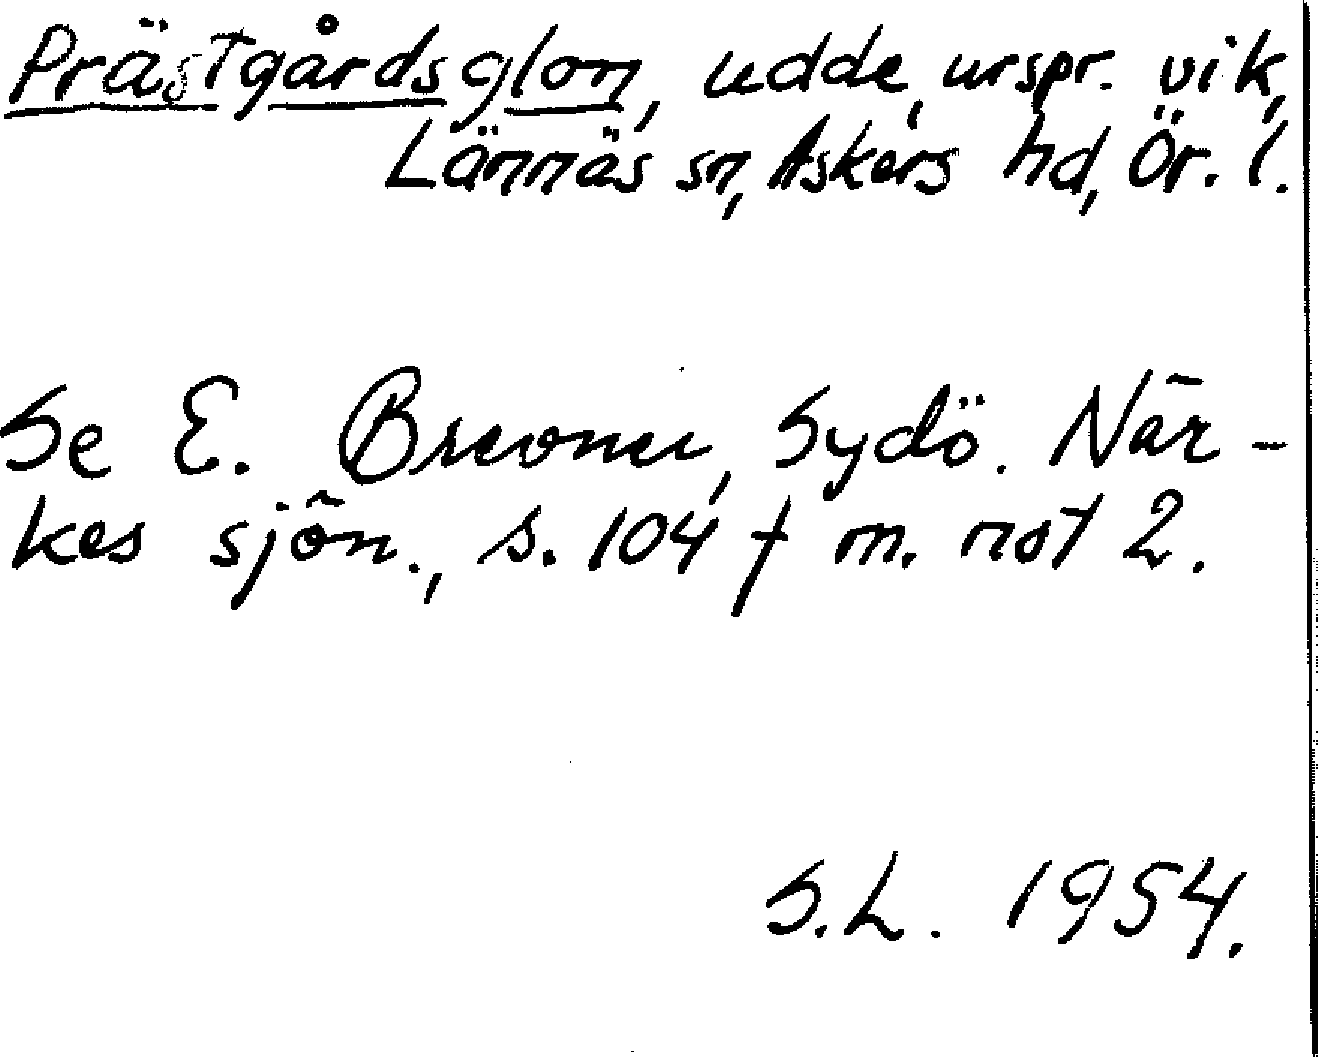 Prästgårdsglon, udde, urspr. vik,
Lännäs sn, Askers hd, Ör. l.
Se E. Brevner, Sydö. När-
kes sjön., s. 104 f m. not 2.
S.L. 1954.